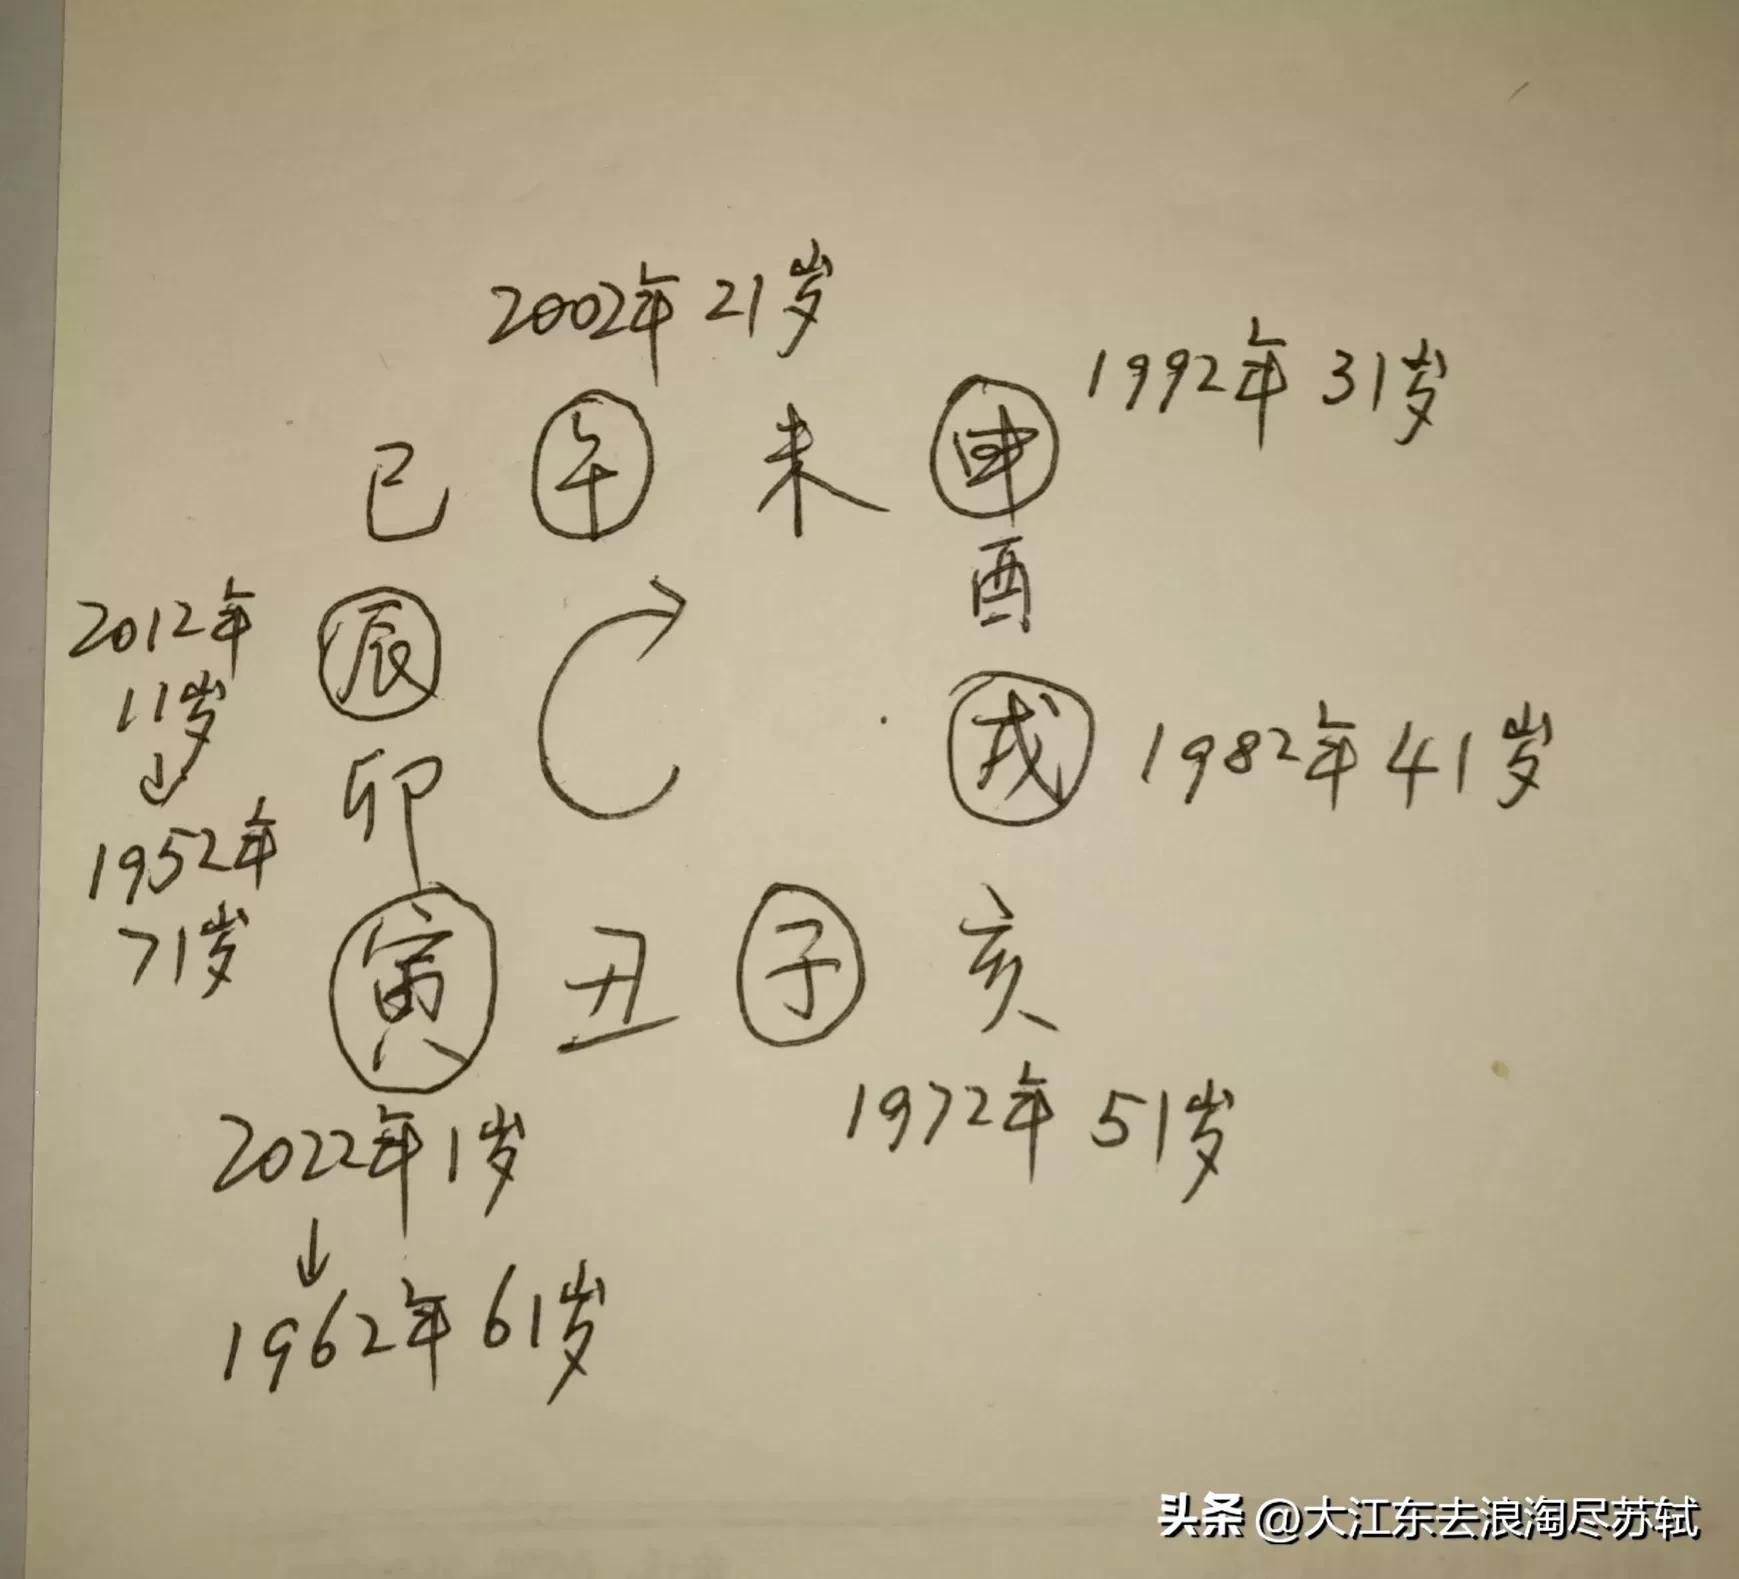 2002年 21岁
1992年 31岁
巳 午 未 申
酉
2012年
11岁
↓
1952年
71岁
辰
卯
戌 1982年 41岁
寅 丑 子 亥
1972年 51岁
2022年 1岁
↓
1962年 61岁
头条 @大江东去浪淘尽苏轼